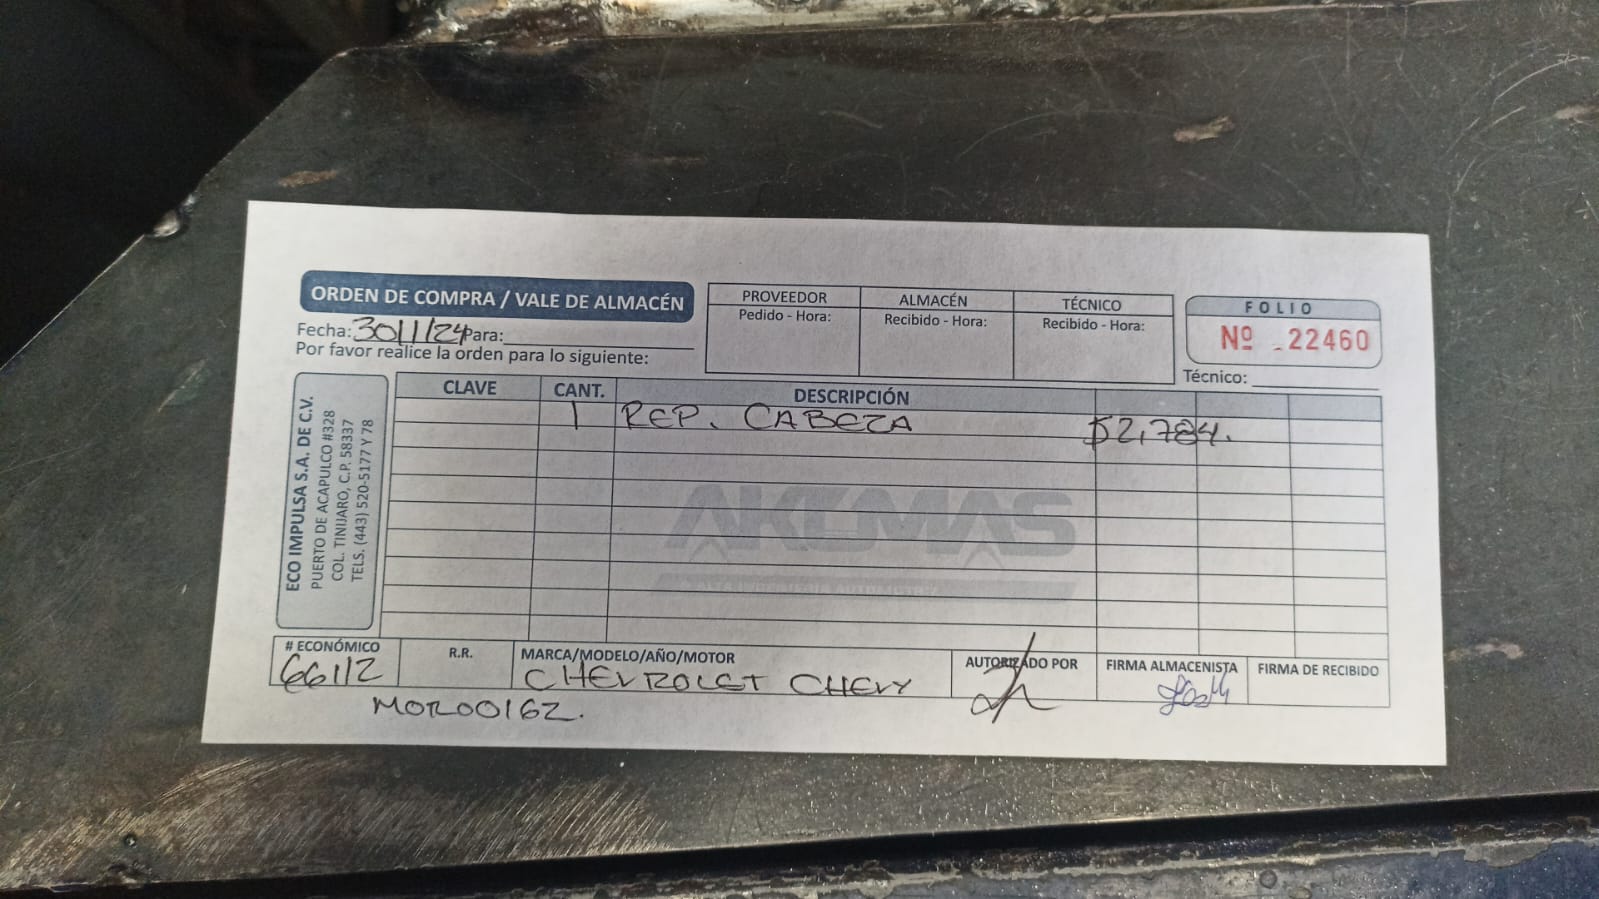 ORDEN DE COMPRA / VALE DE ALMACÉN
Fecha: 30/1/24 Para:
Por favor realice la orden para lo siguiente:
PROVEEDOR
Pedido - Hora:
ALMACÉN
Recibido - Hora:
TÉCNICO
Recibido - Hora:
FOLIO
Nº 22460
Técnico:
ECO IMPULSA S.A. DE C.V.
PUERTO DE ACAPULCO #328
COL. TINIJARO, C.P. 58337
TELS. (443) 520-5177 Y 78
CLAVE CANT. DESCRIPCIÓN
1 REP. CABEZA $2,784.
AKUMAS
# ECONÓMICO
66112
R.R.
MARCA/MODELO/AÑO/MOTOR
CHEVROLET CHEVY
AUTORIZADO POR
FIRMA ALMACENISTA
FIRMA DE RECIBIDO
MOR00162.